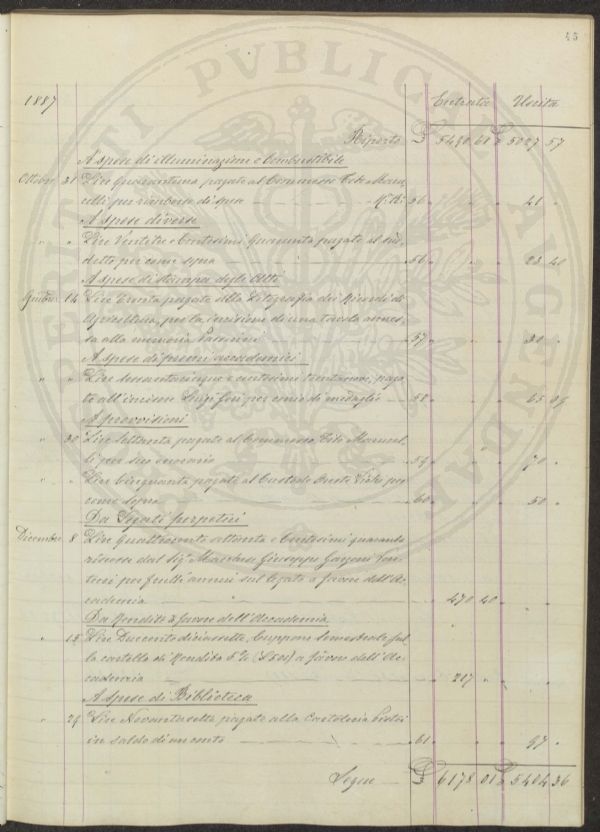 45
1887 Entrata Uscita
Riporto £ 5490 61 £ 5027 57
A spese di illuminazione e Combustibile
Ottobre 31 Lire Quarantuna pagate al Commesso Tito Manu
elli per rimborso di spese 56 " 41 "
A Spese diverse
" " Lire Ventitre e Centesimi Quaranta pagate al sud
detto per come sopra 56 " 23 40
A spese di stampa degli Atti
14 Lire Trenta pagate alla Litografia
Agricoltura, per la incisione di una tavola annes
sa alla memoria Passerini 57 " 30 "
A spese di premi accademici
" " Lire sessantacinque e centesimi paga
te all'incisore Luigi Gori per conio di medaglie 58 " 65 09
A provvisioni
" 30 Lire Settanta pagate al Commesso Tito Manuel
li per suo onorario 59 " 70 "
" " Lire Cinquanta pagate al Custode per
come sopra 60 " 50 "
Da Legati perpetui
Dicembre 8 Lire Quattrocento settanta e Centesimi quaranta
riscosse dal Sigr Marchese Giuseppe
per frutti annui sul legato a favore dell'Ac
cademia 470 40
Da Rendite a favore dell'Accademia
" 15 Lire Duecento diciassette, Cuppone Semestrale sul
la cartella di Rendita 5% (£500) a favore dell'Ac
cademia 217 "
A spese di Biblioteca
" 29 Lire Novantasette pagate alla Cartoleria
in saldo di un conto 61 " 97 "
Segue £ 6178 01 £ 5404 36